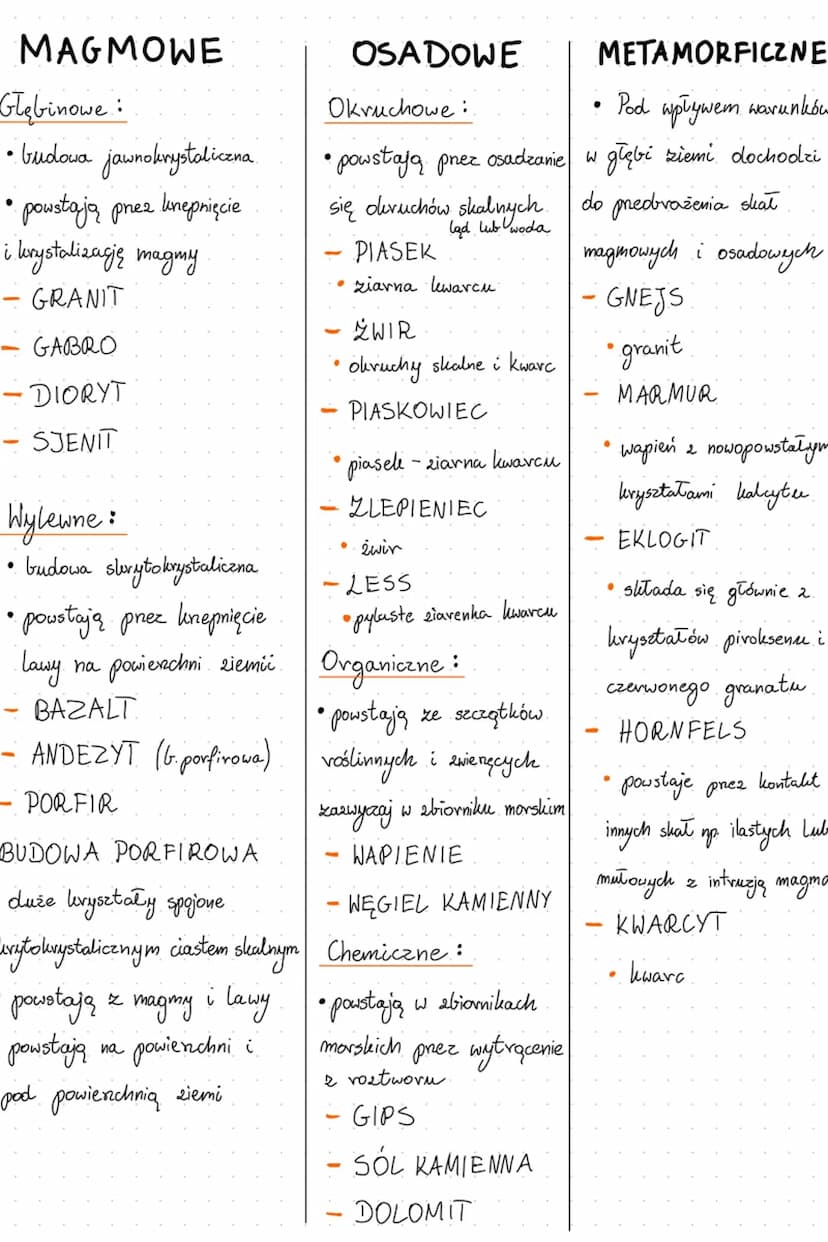 MAGMOWE
Głębinowe:
• budowa jawnokrystaliczna
• powstają przez krzepnięcie
i krystalizację magmy
– GRANIT
– GABRO
– DIORYT
– SJENIT
Wylewne:
• budowa skrytokrystaliczna
• powstają przez krzepnięcie
lawy na powierzchni ziemii
– BAZALT
– ANDEZYT (b.porfirowa)
– PORFIR
BUDOWA PORFIROWA
duże kryształy spojone
krytokrystalicznym ciastem skalnym
powstają z magmy i lawy
powstają na powierzchni i
pod powierzchnią ziemi
OSADOWE
Okruchowe:
• powstają przez osadzanie
się okruchów skalnych
ląd lub woda
– PIASEK
• ziarna kwarcu
– ŻWIR
• okruchy skalne i kwarc
– PIASKOWIEC
• piasek – ziarna kwarcu
– ZLEPIENIEC
• żwir
– LESS
• pylaste ziarenka kwarcu
Organiczne:
• powstają ze szczątków
roślinnych i zwierzęcych
zazwyczaj w zbiorniku morskim
– WAPIENIE
– WĘGIEL KAMIENNY
Chemiczne:
• powstają w zbiornikach
morskich przez wytrącenie
z roztworu
– GIPS
– SÓL KAMIENNA
– DOLOMIT
METAMORFICZNE
• Pod wpływem warunków
w głębi ziemi dochodzi
do przeobrażenia skał
magmowych i osadowych
– GNEJS
• granit
– MARMUR
• wapień z nowopowstałym
kryształami kalcytu
– EKLOGIT
• składa się głównie z
kryształów piroksenu i
czerwonego granatu
– HORNFELS
• powstaje przez kontakt
innych skał np. ilastych lub
mułowych z intruzją magmo
– KWARCYT
• kwarc